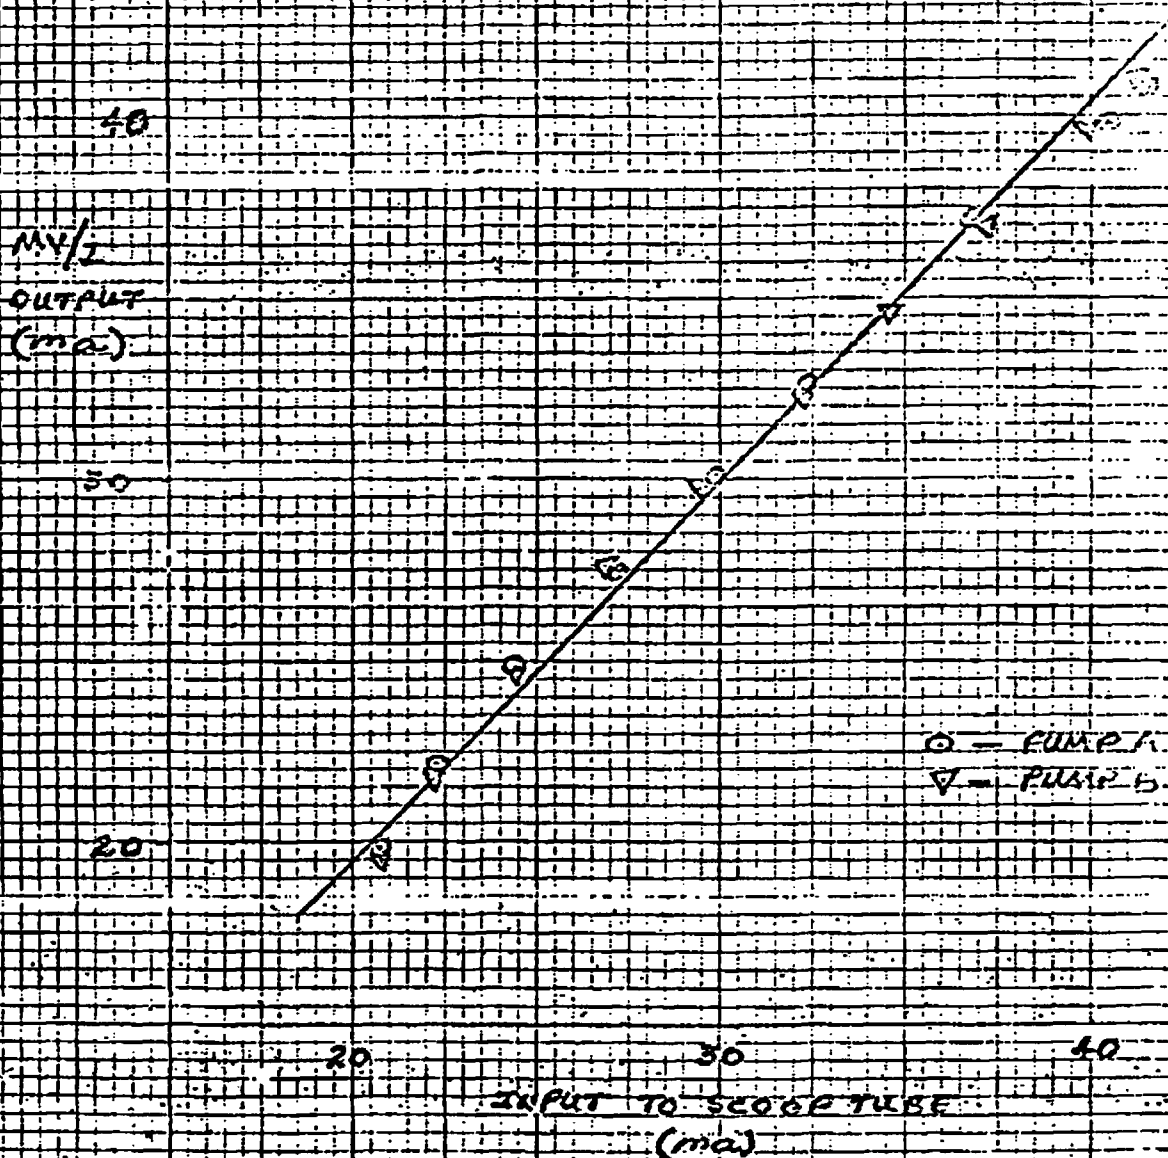 40
MV/I
OUTPUT
(ma)
30
20
⊙ — PUMP A
▽ — PUMP B
20 30 40
INPUT TO SCOOP TUBE
(ma)